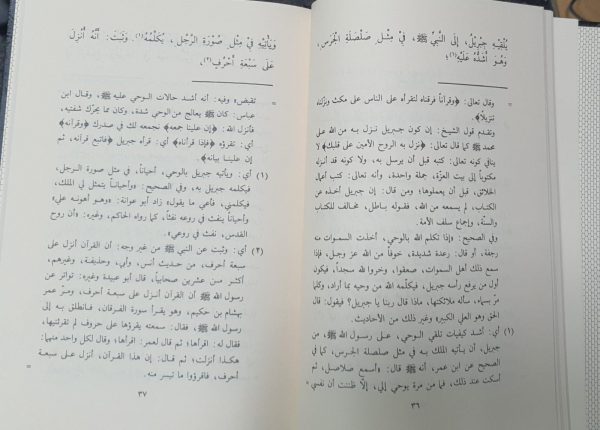 يُلْقِيهِ جِبْرِيلُ، إِلَى النَّبِيِّ ﷺ، فِيْ مِثْلِ صَلْصَلَةِ الجَرَسِ،
وَهُوَ أَشَدُّهُ عَلَيْهِ(١)؛
= وقال تعالى: ﴿وقرآناً فرقناه لتقرأه على الناس على مكث ونزلناه
تنزيلا﴾.
وتقدم قول الشيخ: إن كون جبريل نزل به من الله على
محمد ﷺ كما قال تعالى: ﴿نزل به الروح الأمين على قلبك﴾ لا
ينافي كونه تعالى: كتبه قبل أن يرسل به، ولا كونه قد أنزله
مكتوباً إلى بيت العزة، جملة واحدة، وأنه تعالى: كتب أعمال
الخلائق، قبل أن يعملوها؛ ومن قال: إن جبريل أخذه عن
الكتاب، لم يسمعه من الله، فقوله باطل، مخالف للكتاب
والسنّة، وإجماع سلف الأمة.
وفي الصحيح: «إذا تكلم الله بالوحي، أخذت السموات منه
رجفة، أو قال: رعدة شديدة، خوفاً من الله عز وجل، فإذا
سمع ذلك أهل السموات، صعقوا، وخروا لله سجداً، فيكون
أول من يرفع رأسه جبريل، فيكلمه الله من وحيه بما أراد، وكلما
مر بسماء، سأله ملائكتها، ماذا قال ربنا يا جبريل؟ فيقول: قال
الحق وهو العلي الكبير» وغير ذلك من الأحاديث.
(١) أي: أشد كيفيات تلقي الوحي، على رسول الله ﷺ، من
جبريل، أن يأتيه الملك به في مثل صلصلة الجرس، كما في
الصحيح عن ابن عمر، أنه ﷺ قال: «أسمع صلاصل، ثم
أسكت عند ذلك، فما من مرة يوحي لي، إلّا ظننت أن نفسي =
٣٦
وَيَأْتِيْهِ فِيْ مِثْلِ صُوْرَةِ الرَّجُلِ، يُكَلِّمُهُ(١). وَثَبَتَ: أَنَّهُ أُنْزِلَ
عَلَى سَبْعَةِ أَحْرُفٍ(٢)،
= تقبض» وفيه: أنه أشد حالات الوحي عليه ﷺ، وقال ابن
عباس: كان ﷺ يعالج من الوحي شدة، وكان مما يحرّك شفتيه،
فأنزل الله: ﴿إن علينا جمعه﴾ نجمعه لك في صدرك ﴿وقرآنه﴾
أي: تقرؤه ﴿فإذا قرأناه﴾ أي: قرأه جبريل ﴿فاتبع قرآنه، ثم
إن علينا بيانه﴾.
(١) أي: ويأتيه جبريل بالوحي، أحياناً، في مثل صورة الرجل،
فيكلمه جبريل به، وفي الصحيح: «وأحياناً يتمثل لي الملك،
فيكلمني، فأعي ما يقول» زاد أبو عوانة: «وهو أهونه علي»
وأحياناً ينفث في روعه نفثاً، كما رواه الحاكم، وغيره: «أن روح
القدس، نفث في روعي».
(٢) أي: وثبت عن النبي ﷺ من غير وجه: أن القرآن أنزل على
سبعة أحرف، من حديث أنس، وأبي، وحذيفة، وغيرهم،
أكثر من عشرين صحابياً؛ قال أبو عبيدة وغيره: تواتر عن
رسول الله ﷺ أن القرآن أنزل على سبعة أحرف، ومرّ عمر
بهشام بن حكيم، وهو يقرأ سورة الفرقان، فانطلق به إلى
رسول الله ﷺ، فقال: سمعته يقرؤها على حروف لم تقرئنيها،
فقال له: اقرأها؛ ثم قال لعمر: اقرأها؛ وقال لكل واحد منهما:
هكذا أنزلت؛ ثم قال: إن هذا القرآن، أنزل على سبعة
أحرف، فاقرؤوا ما تيسر منه. =
٣٧